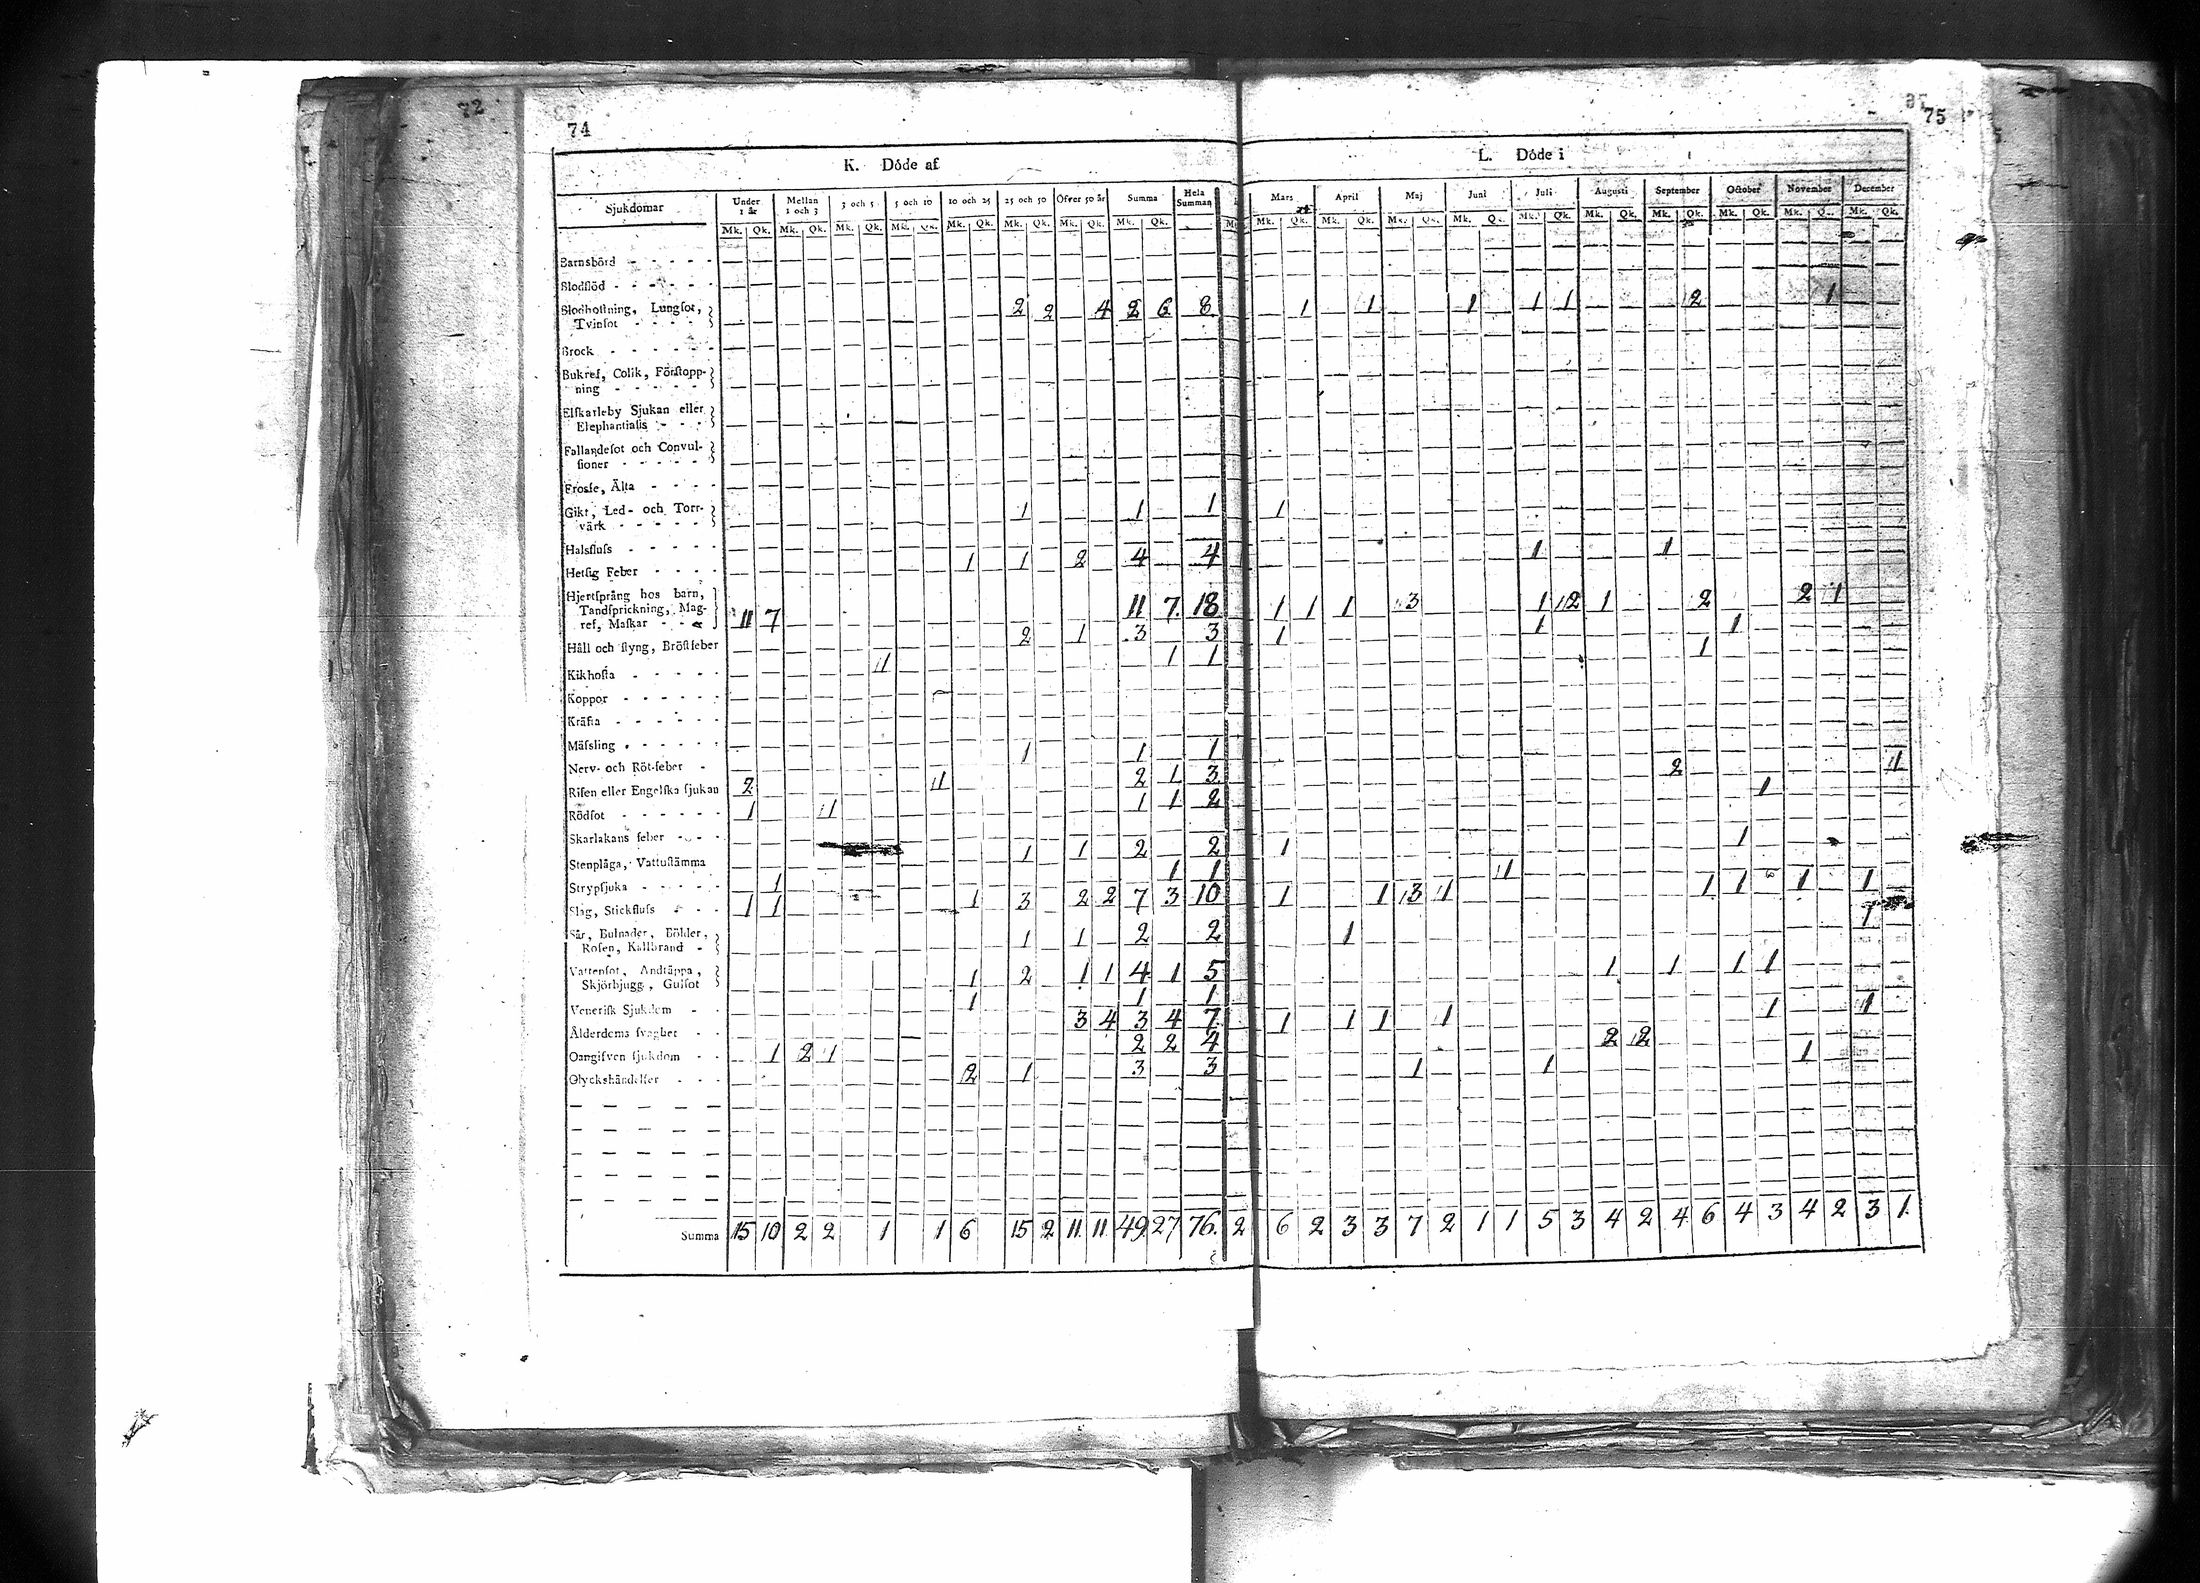 72
74
75
K. Döde af
L. Döde i
Sjukdomar Under 1 år Mellan 1 och 3 3 och 5 5 och 10 10 och 25 25 och 50 Öfver 50 år Summa Hela Summan Mars April Maj Juni Juli Augusti September October November December
Mk. Qk. Mk. Qk. Mk. Qk. Mk. Qk. Mk. Qk. Mk. Qk. Mk. Qk. Mk. Qk. Mk. Qk. Mk. Qk. Mk. Qk. Mk. Qk. Mk. Qk. Mk. Qk. Mk. Qk. Mk. Qk. Mk. Qk. Mk. Qk.
Barnsbörd
Blodflöd
Blodhostning, Lungsot,
Tvinsot 2 2 4 2 6 8 1 1 1 1 1 2 1
Brock
Bukref, Colik, Förstopp-
ning
Elfkarleby Sjukan eller
Elephantiasis
Fallandesot och Convul-
sioner
Frossa, Älta
Gikt, Led- och Torr-
värk 1 1 1 1
Halsfluss
Hetsig Feber 1 1 2 4 4 1 1
Hjertsprång hos barn,
Tandsprickning, Mag-
ref, Maskar 11 7 11 7 18 1 1 1 3 1 2 1 2 2 1
Håll och styng, Bröstfeber 2 1 3 3 1 1 1
Kikhosta 1 1 1 1
Koppor
Kräfta
Mässling
Nerv- och Röt-feber 1 1 1
Risen eller Engelska sjukan 2 1 2 1 3 2 1
Rödsot 1 1 1 1 2 1
Skarlakans feber
Stenplåga, Vattustämma 1 1 2 2 1 1
Strypsjuka 1 1 1 1
Slag, Stickfluss 1 1 1 3 2 2 7 3 10 1 1 3 1 1 1 1 1
Sår, Bulnader, Bölder,
Rosen, Kallbrand 1 1 2 2 1 1
Vattensot, Andtäppa,
Skjörbjugg, Gulsot 1 2 1 1 4 1 5 1 1 1 1
Venerisk Sjukdom 1 1 1
Ålderdoms svaghet 3 4 3 4 7 1 1 1 1 1 1
Oangifven sjukdom 1 2 1 2 2 4 2 2
Olyckshändelser 2 1 3 3 1 1 1
Summa 15 10 2 2 1 1 6 15 2 11 11 49 27 76 2 6 2 3 3 7 2 1 1 5 3 4 2 4 6 4 3 4 2 3 1